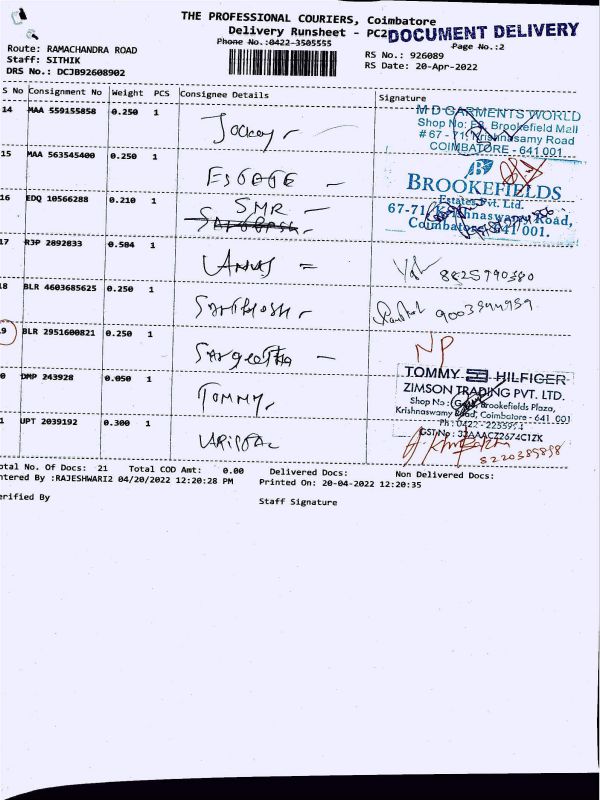 THE PROFESSIONAL COURIERS, Coimbatore
Delivery Runsheet - PC2
DOCUMENT DELIVERY
Phone No.:0422-3505555
Page No.:2
Route: RAMACHANDRA ROAD
Staff: SITHIK
DRS No.: DCJB92608902
RS No.: 926089
RS Date: 20-Apr-2022
S No Consignment No Weight PCS Consignee Details Signature
14 MAA 559155858 0.250 1 Jockey
M D GARMENTS WORLD
Shop No: Brookefield Mall
# 67 - 71 Krishnasamy Road
COIMBATORE - 641 001
15 MAA 563545400 0.250 1
BROOKEFIELDS
Estates Pvt. Ltd.
67-71, Krishnaswamy Road,
Coimbatore 641 001.
16 EDQ 10566288 0.210 1 SMR
17 RJP 2892833 0.504 1
8825790380
18 BLR 4603685625 0.250 1 Santhosh
9003944959
19 BLR 2951600821 0.250 1 Sangeetha NP
0 DMP 243928 0.050 1 TOMMY
TOMMY HILFIGER
ZIMSON TRADING PVT. LTD.
Shop No : Brookefields Plaza,
Krishnaswamy Road, Coimbatore - 641 001
Ph : 0422 - 2255994
GST No : 33AAACZ2674C1ZK
1 UPT 2039192 0.300 1
8220389898
otal No. Of Docs: 21 Total COD Amt: 0.00 Delivered Docs: Non Delivered Docs:
ntered By :RAJESHWARI2 04/20/2022 12:20:28 PM Printed On: 20-04-2022 12:20:35
erified By Staff Signature